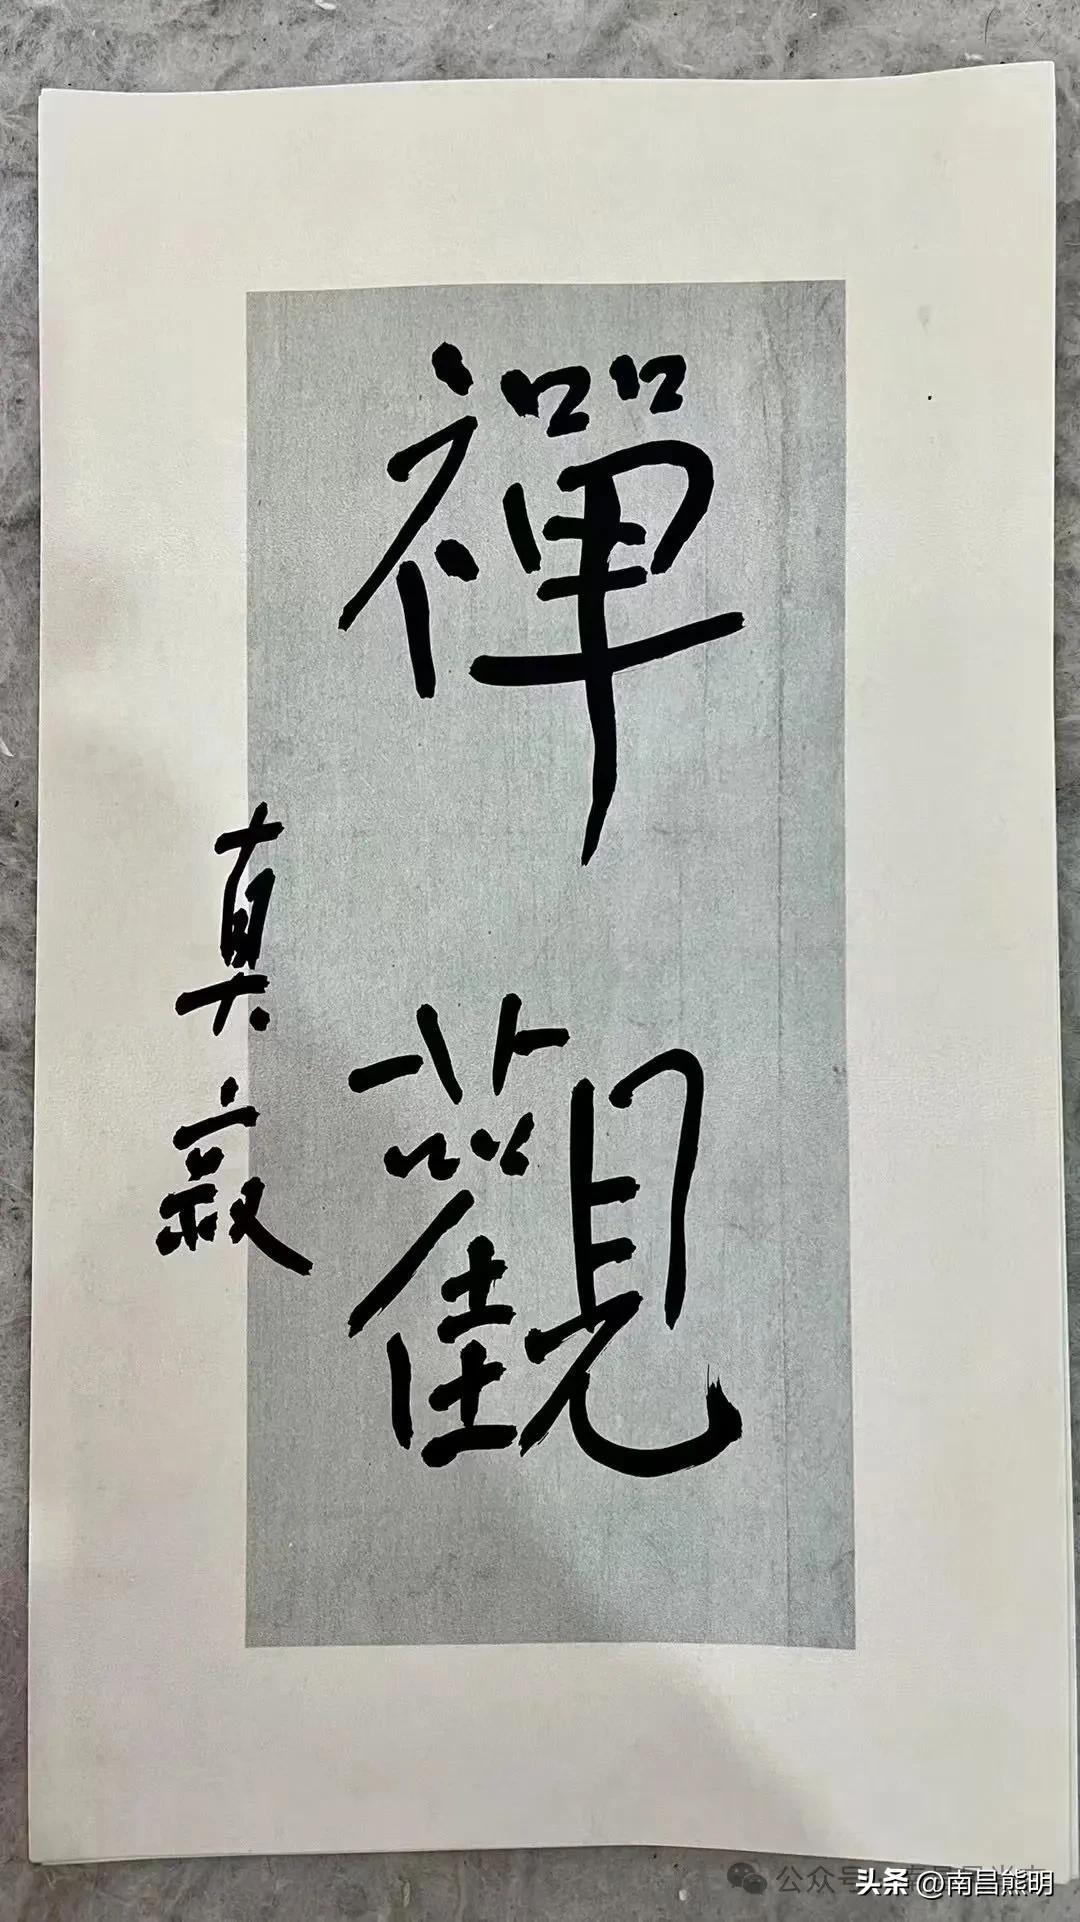 禪觀
真寂
公众号
头条 @南昌熊明